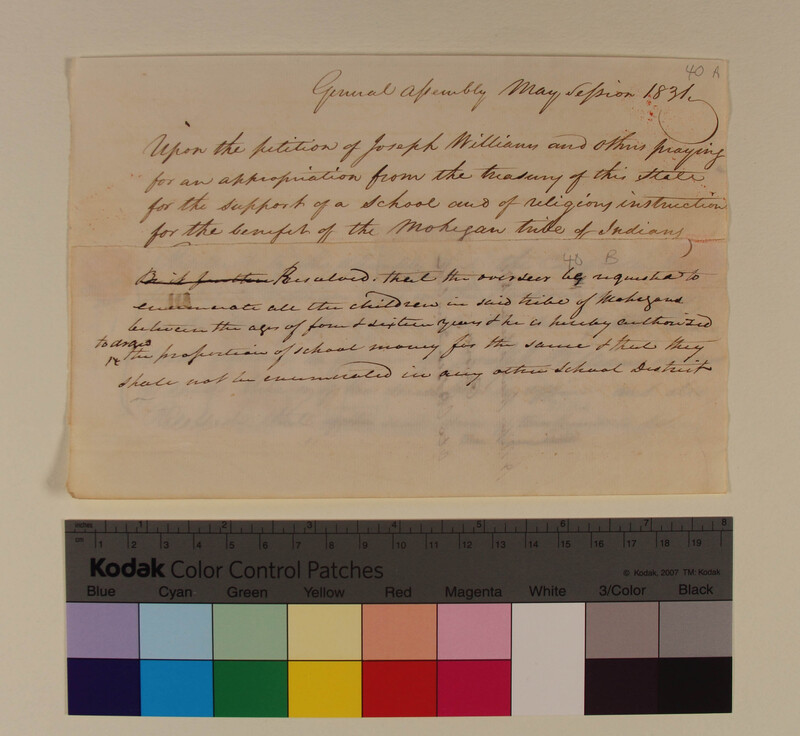 40 A
General Assembly May Session 1831.
Upon the petition of Joseph Williams and others praying
for an appropriation from the treasury of this State
for the support of a school and of religious instruction
for the benefit of the Mohegan tribe of Indians
40 B
Be it further Resolved, that the overseer be requested to
enumerate all the children in said tribe of Mohegans
between the ages of four & sixteen years & he is hereby authorized
to draw
the proportion of school money for the same & that they
shall not be enumerated in any other School District
inches 1 2 3 4 5 6 7 8
cm 1 2 3 4 5 6 7 8 9 10 11 12 13 14 15 16 17 18 19
Kodak Color Control Patches
© Kodak, 2007 TM: Kodak
Blue Cyan Green Yellow Red Magenta White 3/Color Black